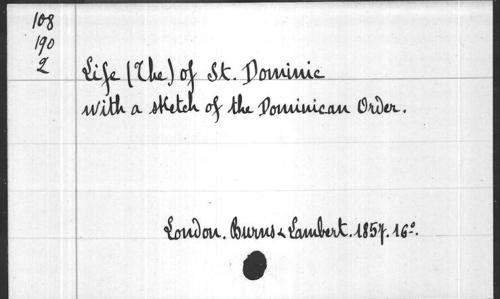 108
190
2
Life (The) of St. Dominic
with a sketch of the Dominican Order.
London. Burns & Lambert. 1857. 16º.